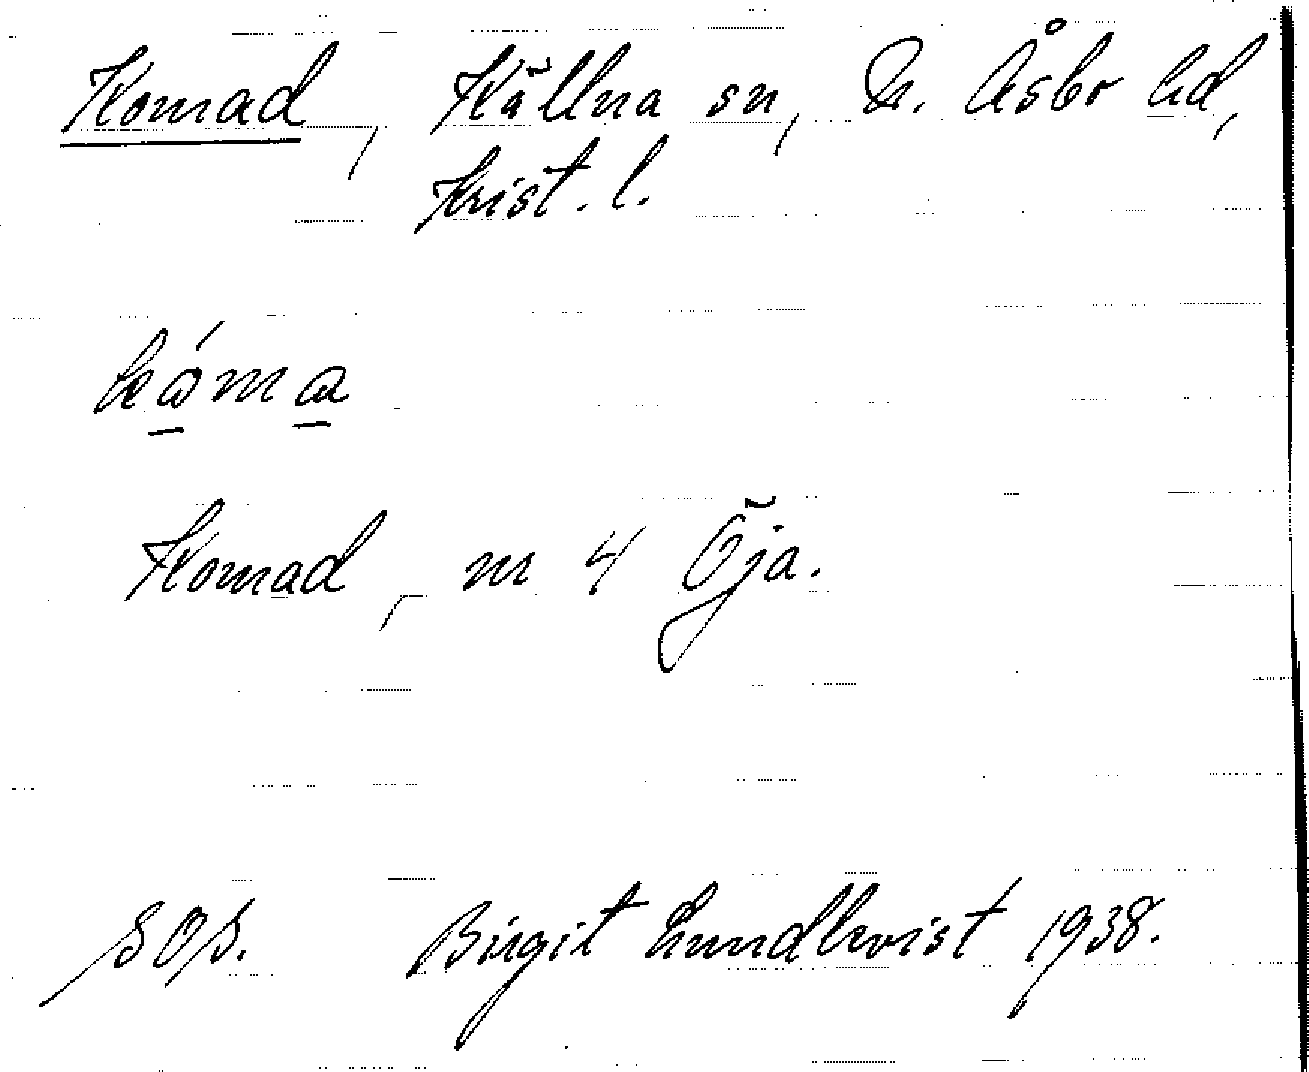 Komad, Källna sn, N. Åsbo hd,
Krist. l.
Komad, nr 4 Öja.
SOS. Birgit Lundkvist 1938.